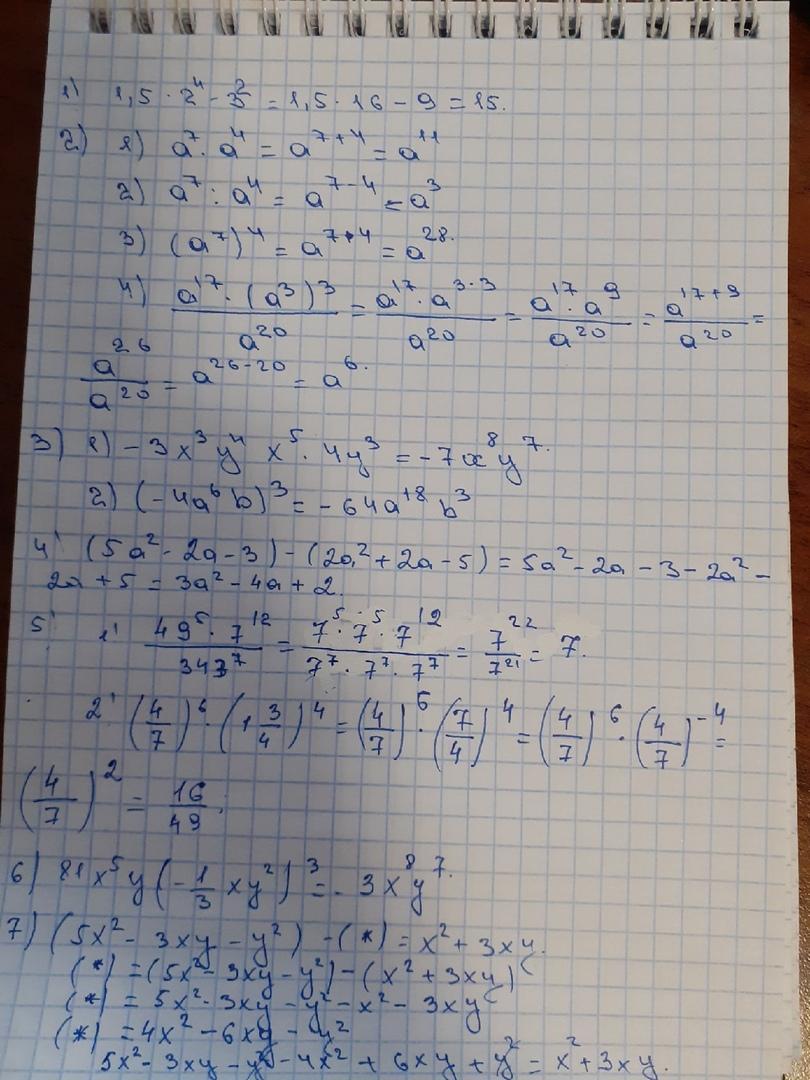 1) 1,5 · 2⁴ - 3² = 1,5 · 16 - 9 = 15.
2) 1) a⁷ · a⁴ = a⁷⁺⁴ = a¹¹
2) a⁷ : a⁴ = a⁷⁻⁴ = a³
3) (a⁷)⁴ = a⁷·⁴ = a²⁸.
4) (a¹⁷ · (a³)³)/a²⁰ = (a¹⁷ · a³·³)/a²⁰ = (a¹⁷ · a⁹)/a²⁰ = a¹⁷⁺⁹/a²⁰ =
a²⁶/a²⁰ = a²⁶⁻²⁰ = a⁶.
3) 1) - 3x³y⁴ x⁵ · 4y³ = - 7x⁸y⁷.
2) (-4a⁶b)³ = - 64a⁺⁸ b³
4) (5a² - 2a - 3) - (2a² + 2a - 5) = 5a² - 2a - 3 - 2a² -
2a + 5 = 3a² - 4a + 2.
5) 1) (49⁵ · 7¹²)/343⁷ = (7⁵ · 7⁵ · 7¹²)/(7⁷ · 7⁷ · 7⁷) = 7²²/7²¹ = 7.
2) (4/7)⁶ · (1 3/4)⁴ = (4/7)⁶ · (7/4)⁴ = (4/7)⁶ · (4/7)⁻⁴ =
(4/7)² = 16/49;
6) 81x⁵y(-1/3 xy²)³ = - 3x⁸y⁷.
7) (5x² - 3xy - y²) - (*) = x² + 3xy.
(*) = (5x² - 3xy - y²) - (x² + 3xy)
(*) = 5x² - 3xy - y² - x² - 3xy
(*) = 4x² - 6xy - y²
5x² - 3xy - y² - 4x² + 6xy + y² = x² + 3xy.